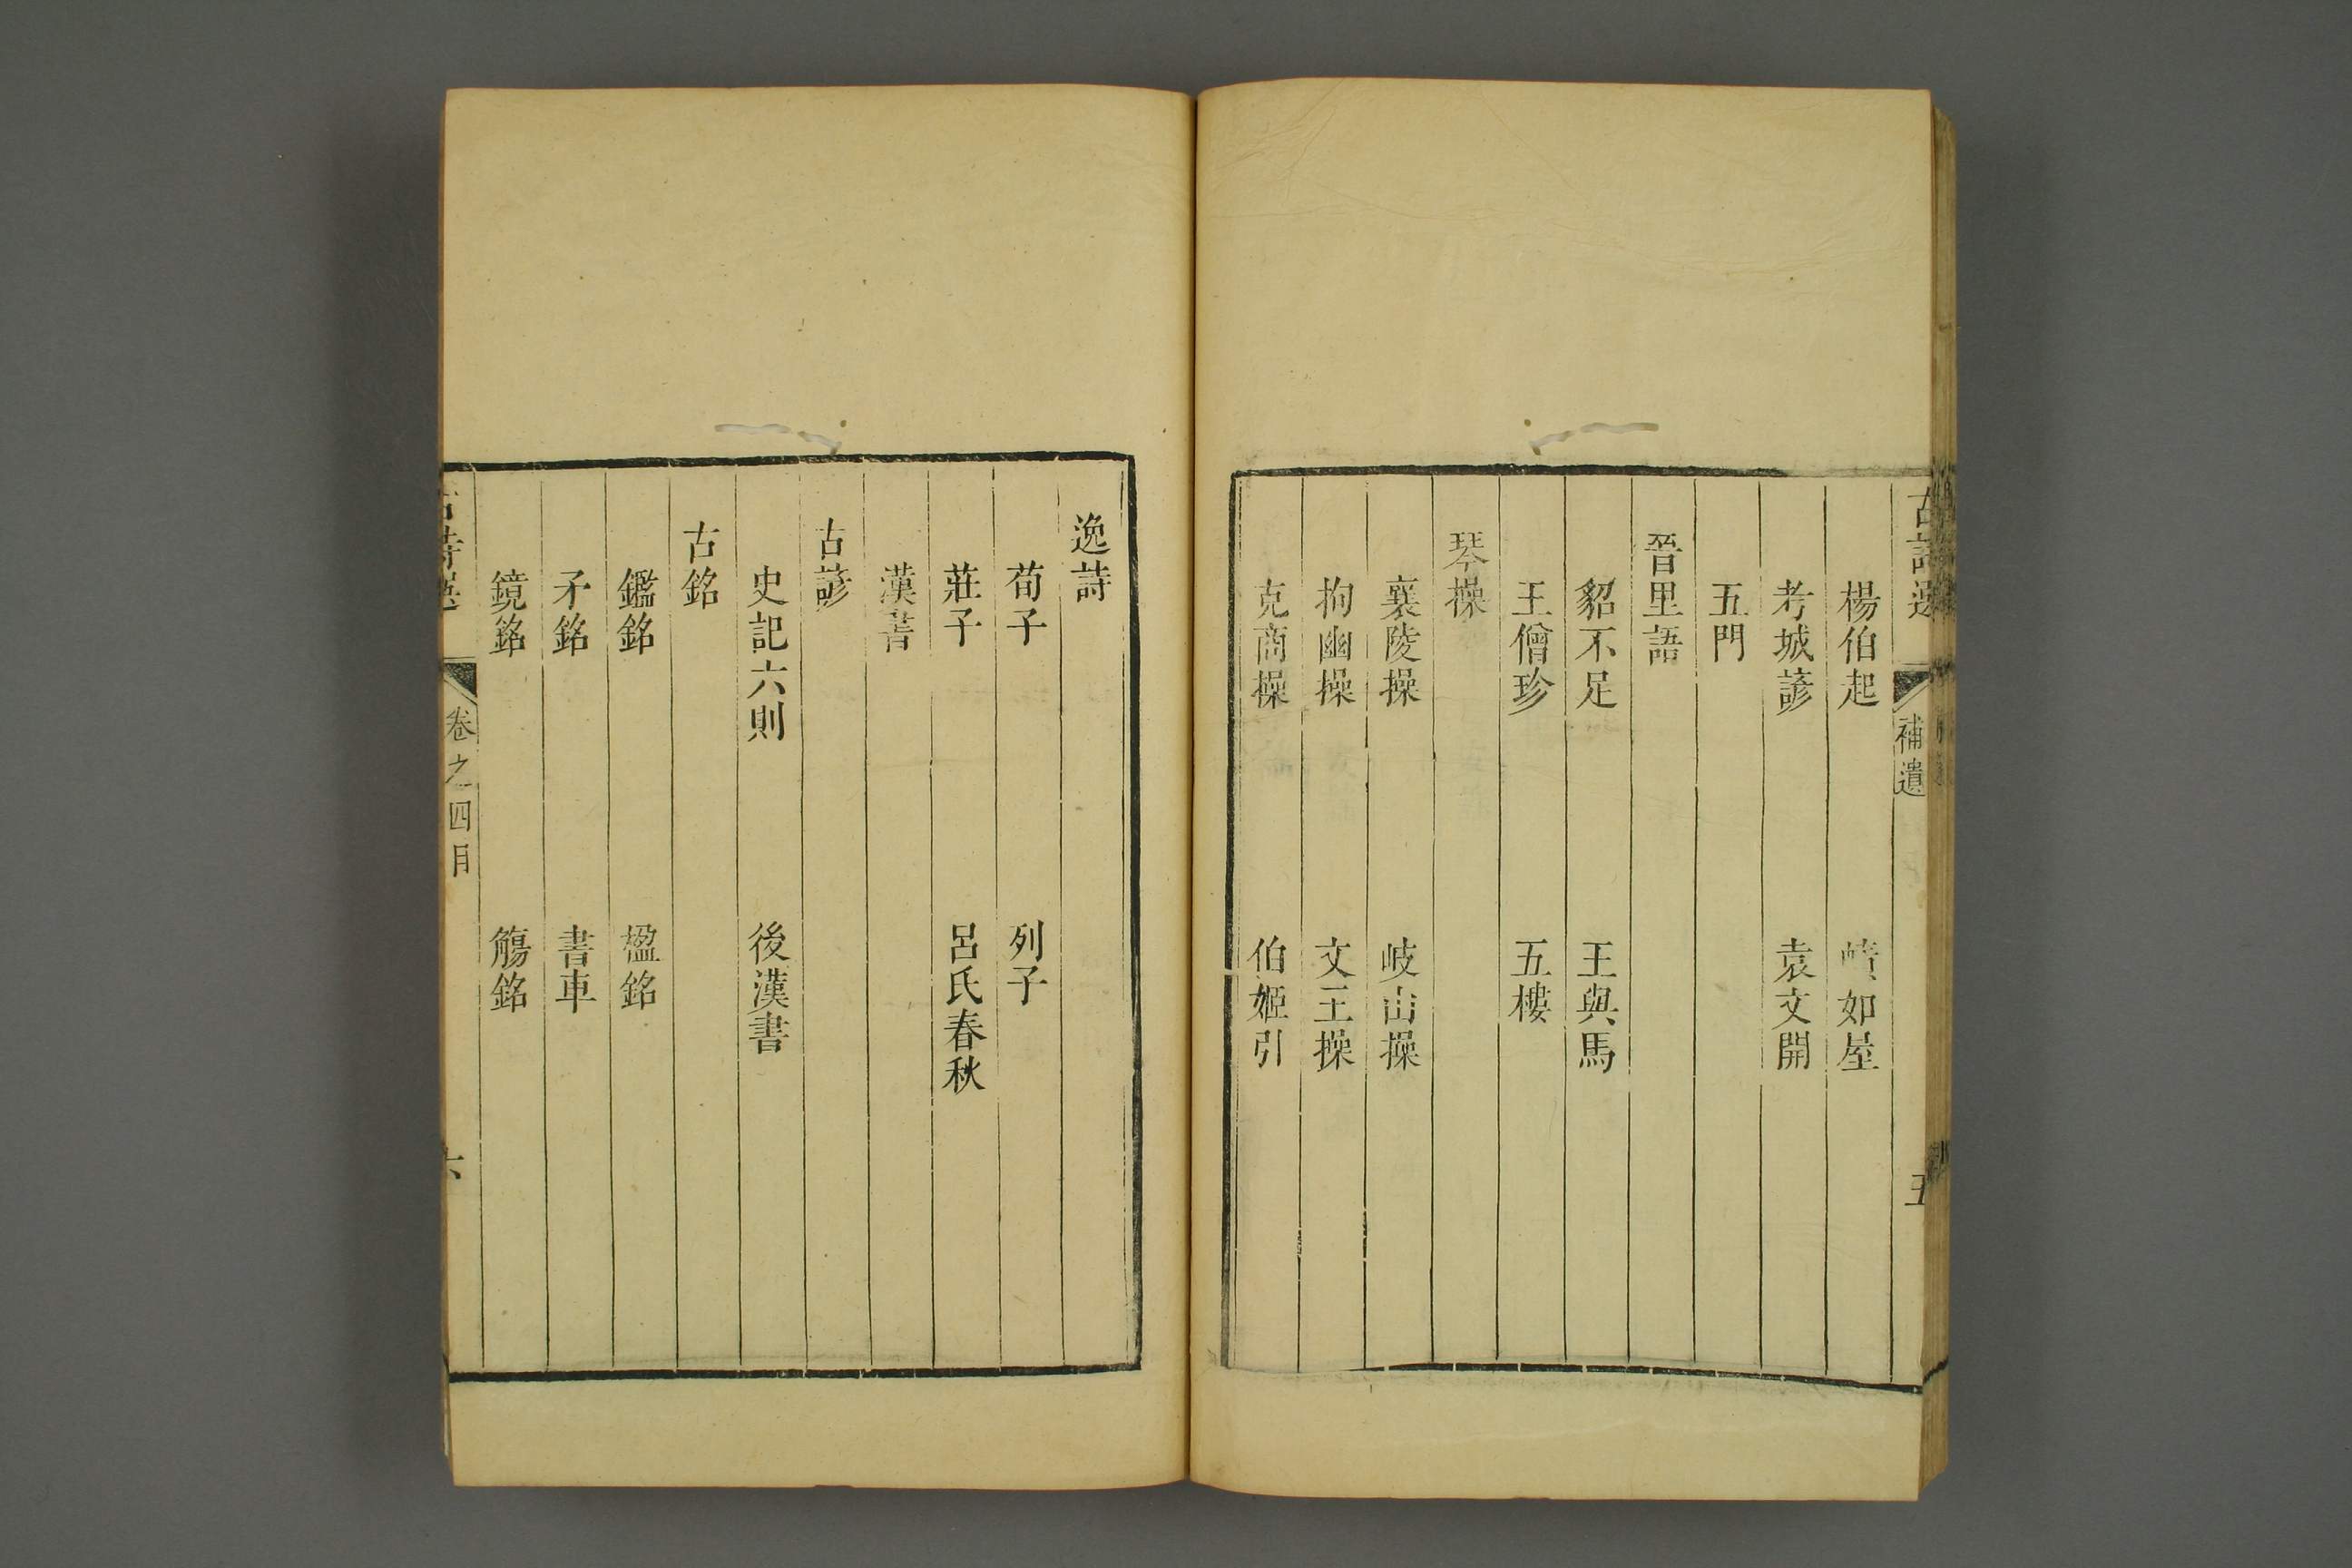 古詩選 補遺 五
楊伯起 幘如屋
考城諺 袁文開
五門
晉里語
貂不足 王與馬
王僧珍 五樓
琴操
襄陵操 岐山操
拘幽操 文王操
克商操 伯姬引
逸詩
荀子 列子
莊子 呂氏春秋
漢書
古諺
史記六則 後漢書
古銘
鑑銘 楹銘
矛銘 書車
鏡銘 觴銘
古詩選 卷之四目 六